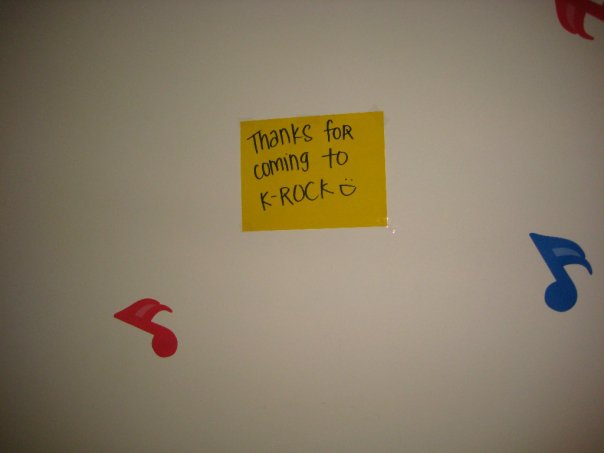 Thanks for
coming to
K-ROCK